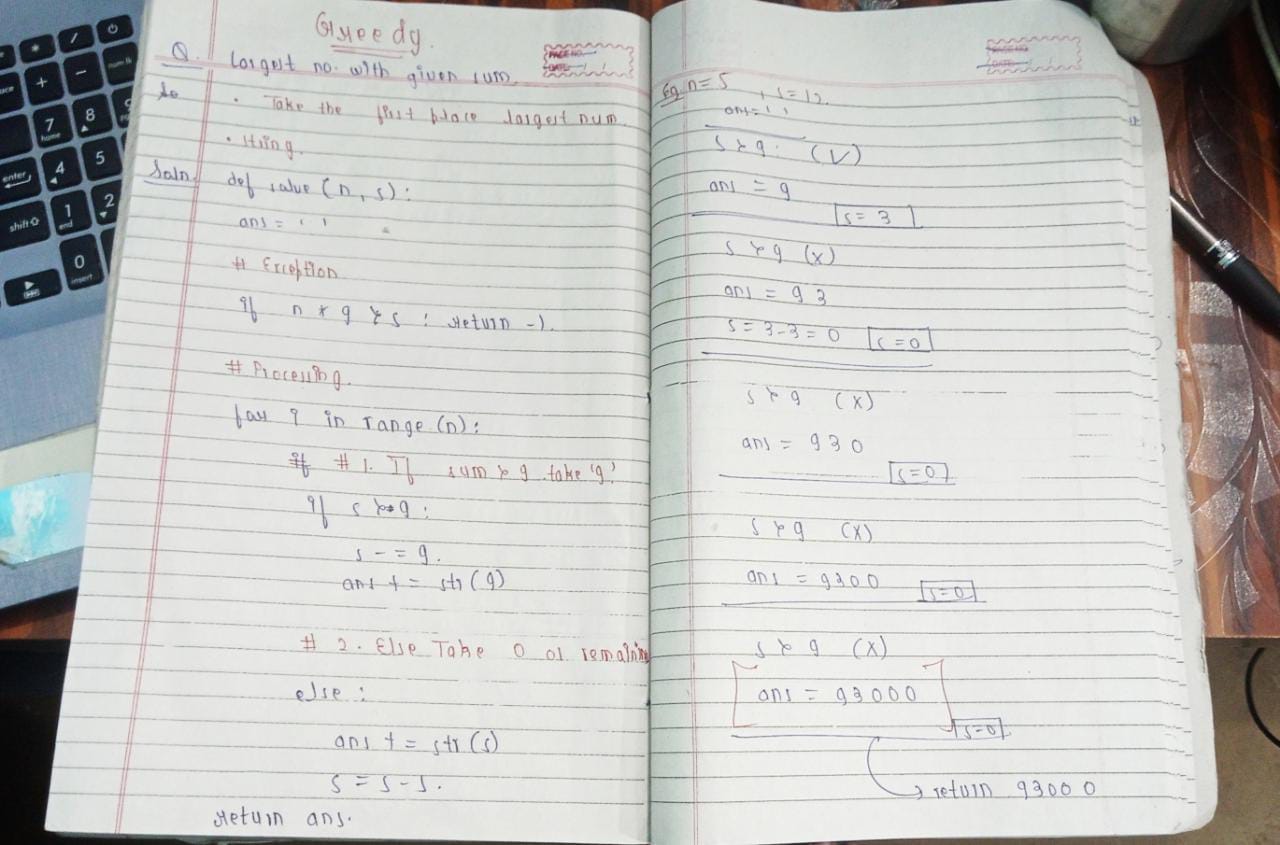 Greedy.
PAGE NO.
DATE: / /
Q. Largest no. with given sum.
• Take the first place largest num.
• string.
Soln. def value (n, s):
ans = ' '
# Exception
if n * 9 < s : return -1.
# Processing.
for i in range (n):
# 1. If sum > 9 take '9'
if s >= 9 :
s - = 9.
ans + = str (9)
# 2. Else Take 0 or remaining
else :
ans + = str (s)
s = s - s.
return ans.
PAGE NO.
DATE:
Eg n = 5 , s = 12.
ans = ' '
s > 9 . (√)
ans = 9
s = 3
s > 9 (x)
ans = 93
s = 3 - 3 = 0 s = 0
s > 9 (x)
ans = 930
s = 0
s > 9 (x)
ans = 9300 s = 0
s > 9 (x)
ans = 93000
s = 0
return 93000
+
-
num lk
7
home
8
enter
4
5
shift
1
end
2
0
insert